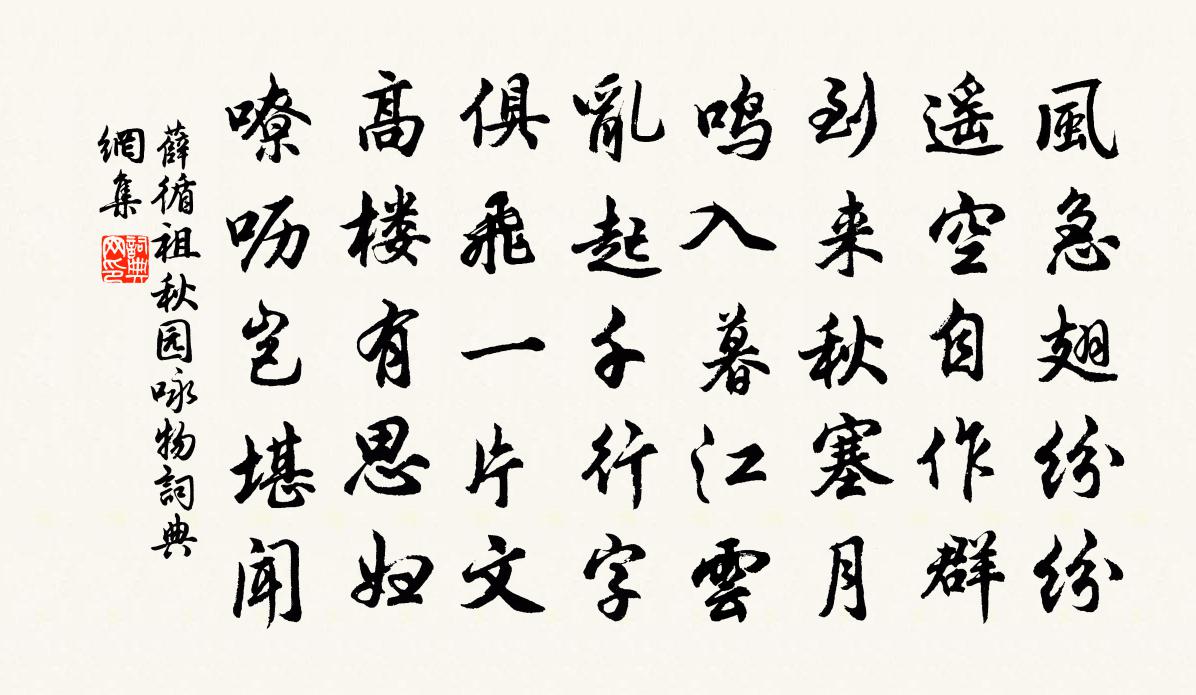 風急翅紛紛
遥空自作群
到来秋塞月
鸣入暮江雲
亂起千行字
俱飛一片文
高楼有思妇
嘹呖岂堪闻
薛循祖秋园咏物詞典
網集
詞典网印